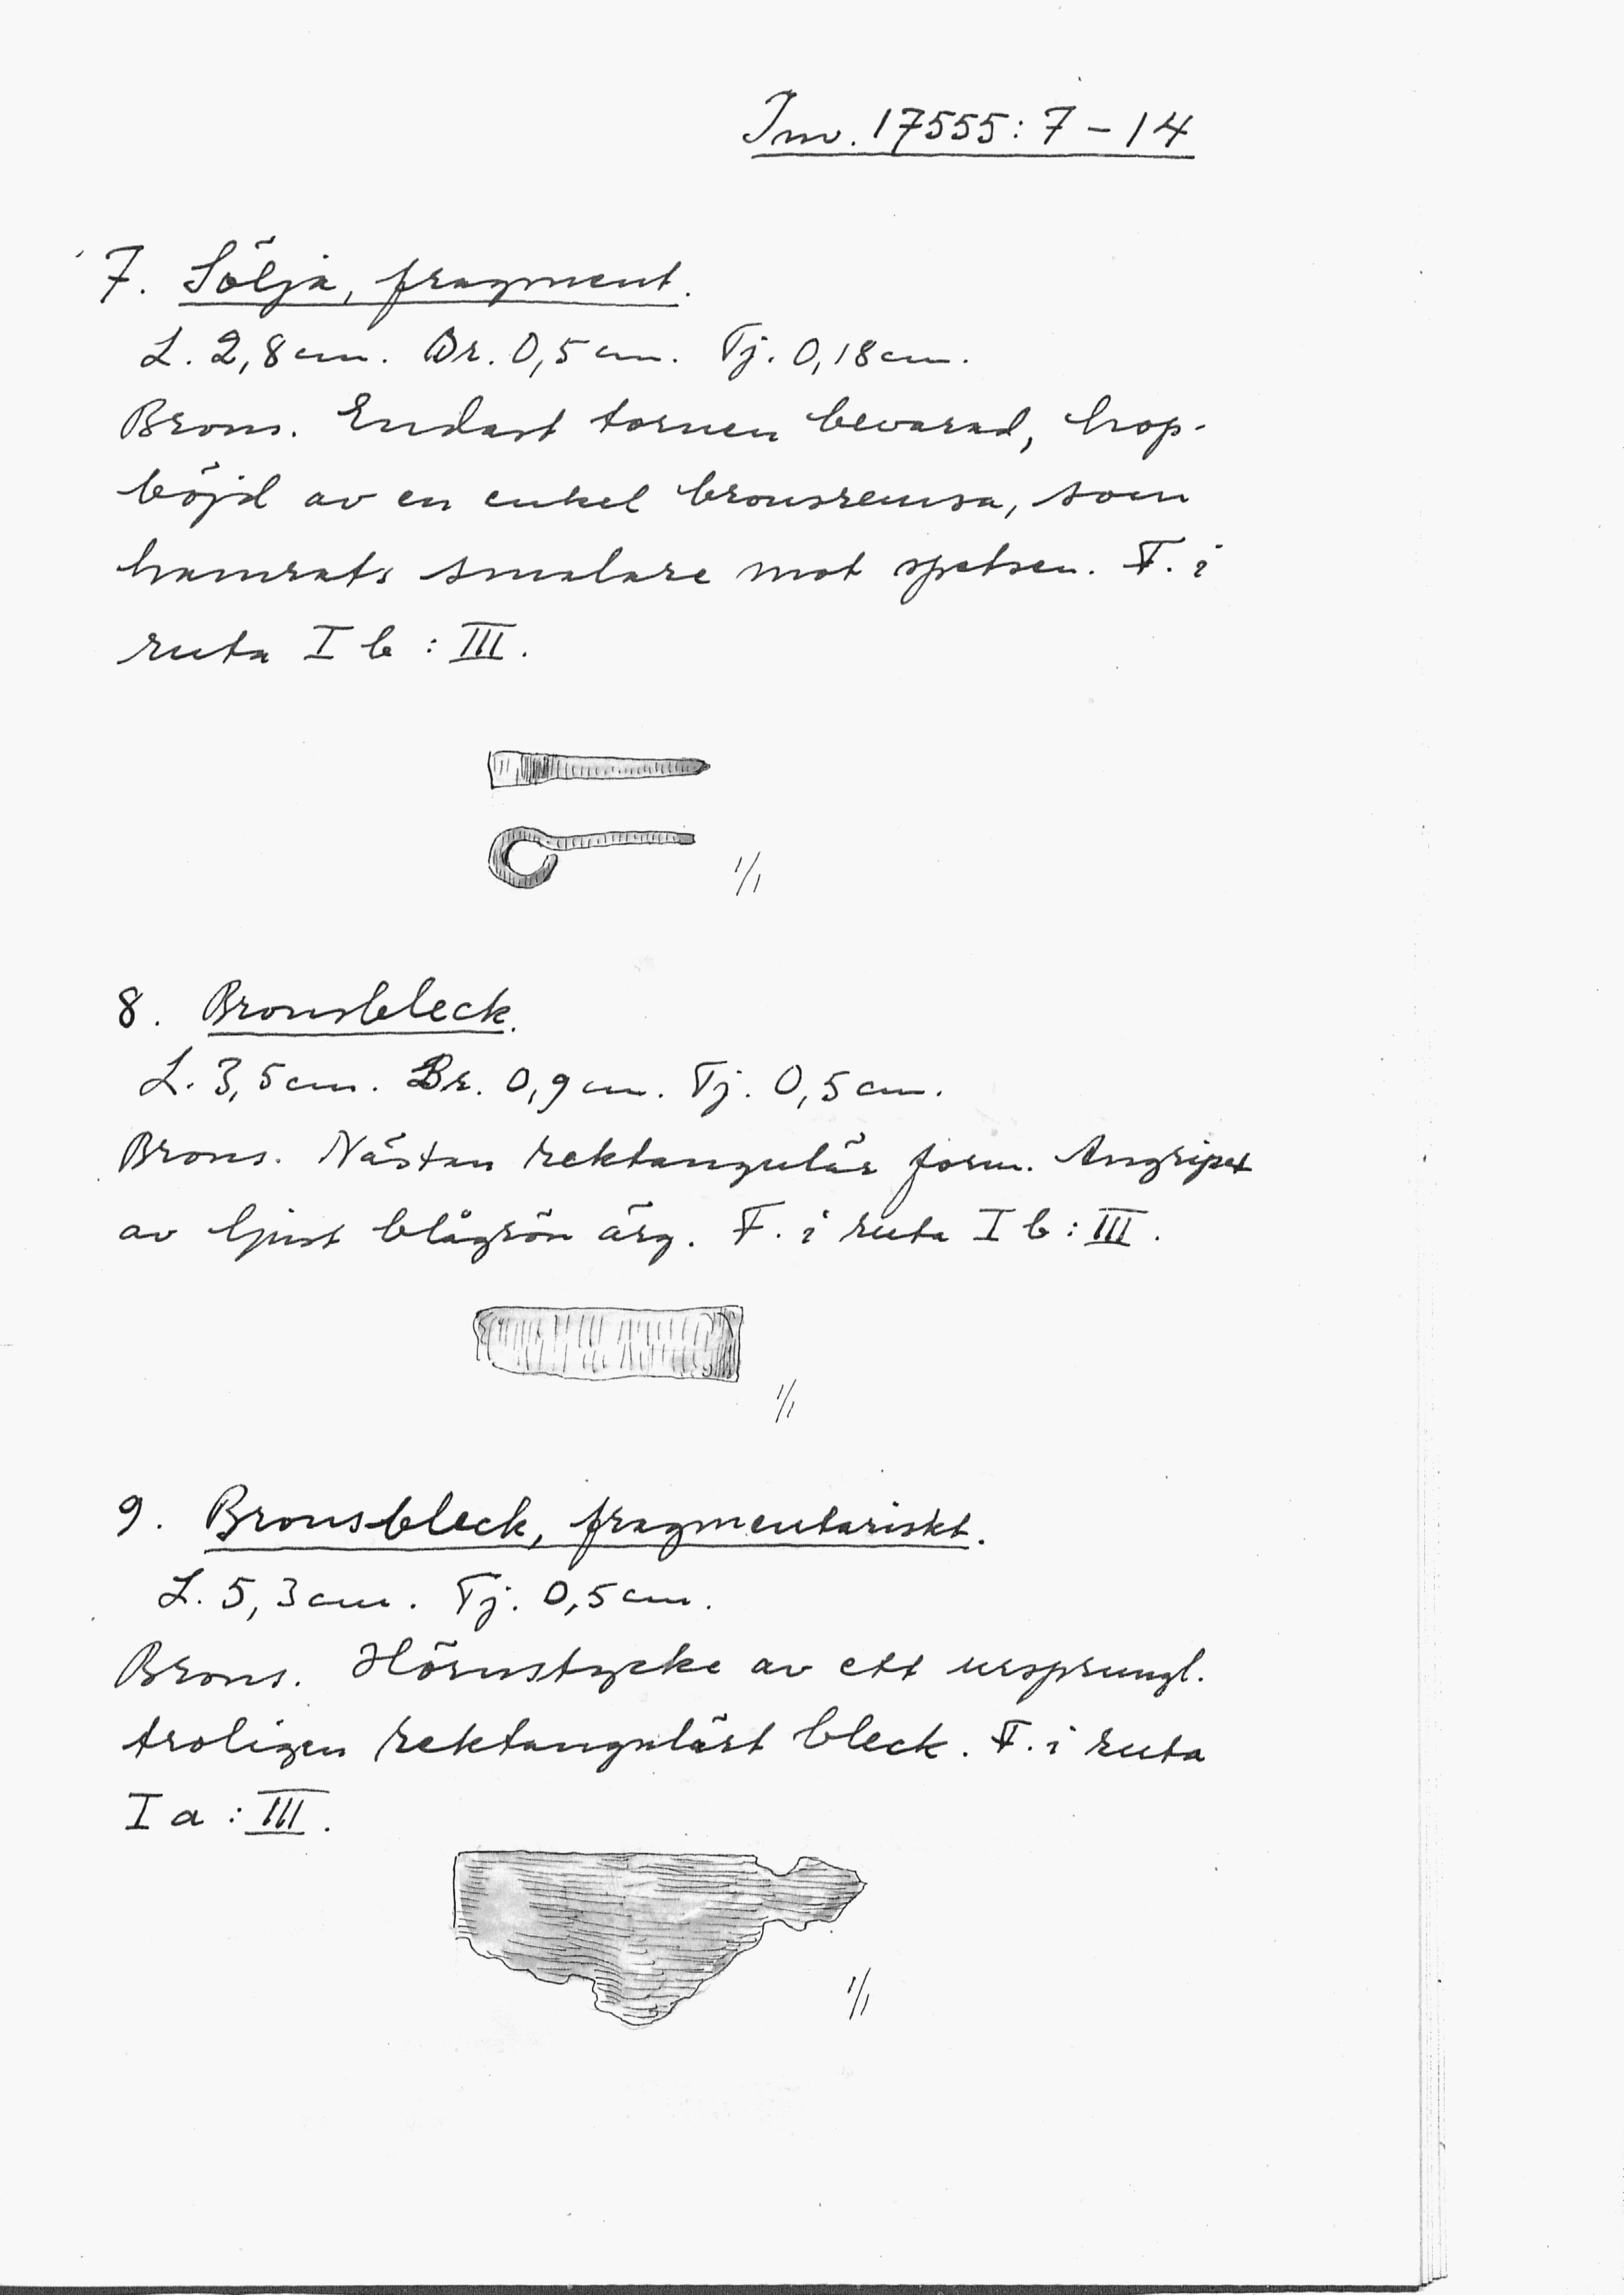 Inv. 17555: 7 - 14
7. Sölja, fragment.
L. 2,8 cm. Br. 0,5 cm. Tj. 0,18 cm.
Brons. Endast tornen bevarad, hop-
böjd av en enkel bronsremsa, som
hamrats smalare mot spetsen. F. i
ruta I b : III.
1/1
8. Bronsbleck.
L. 3,5 cm. Br. 0,9 cm. Tj. 0,5 cm.
Brons. Nästan rektangulär form. Angripet
av ljust blågrön ärg. F. i ruta I b : III.
1/1
9. Bronsbleck, fragmentariskt.
L. 5,3 cm. Tj. 0,5 cm.
Brons. Hörnstycke av ett ursprungl.
troligen rektangulärt bleck. F. i ruta
I a : III.
1/1